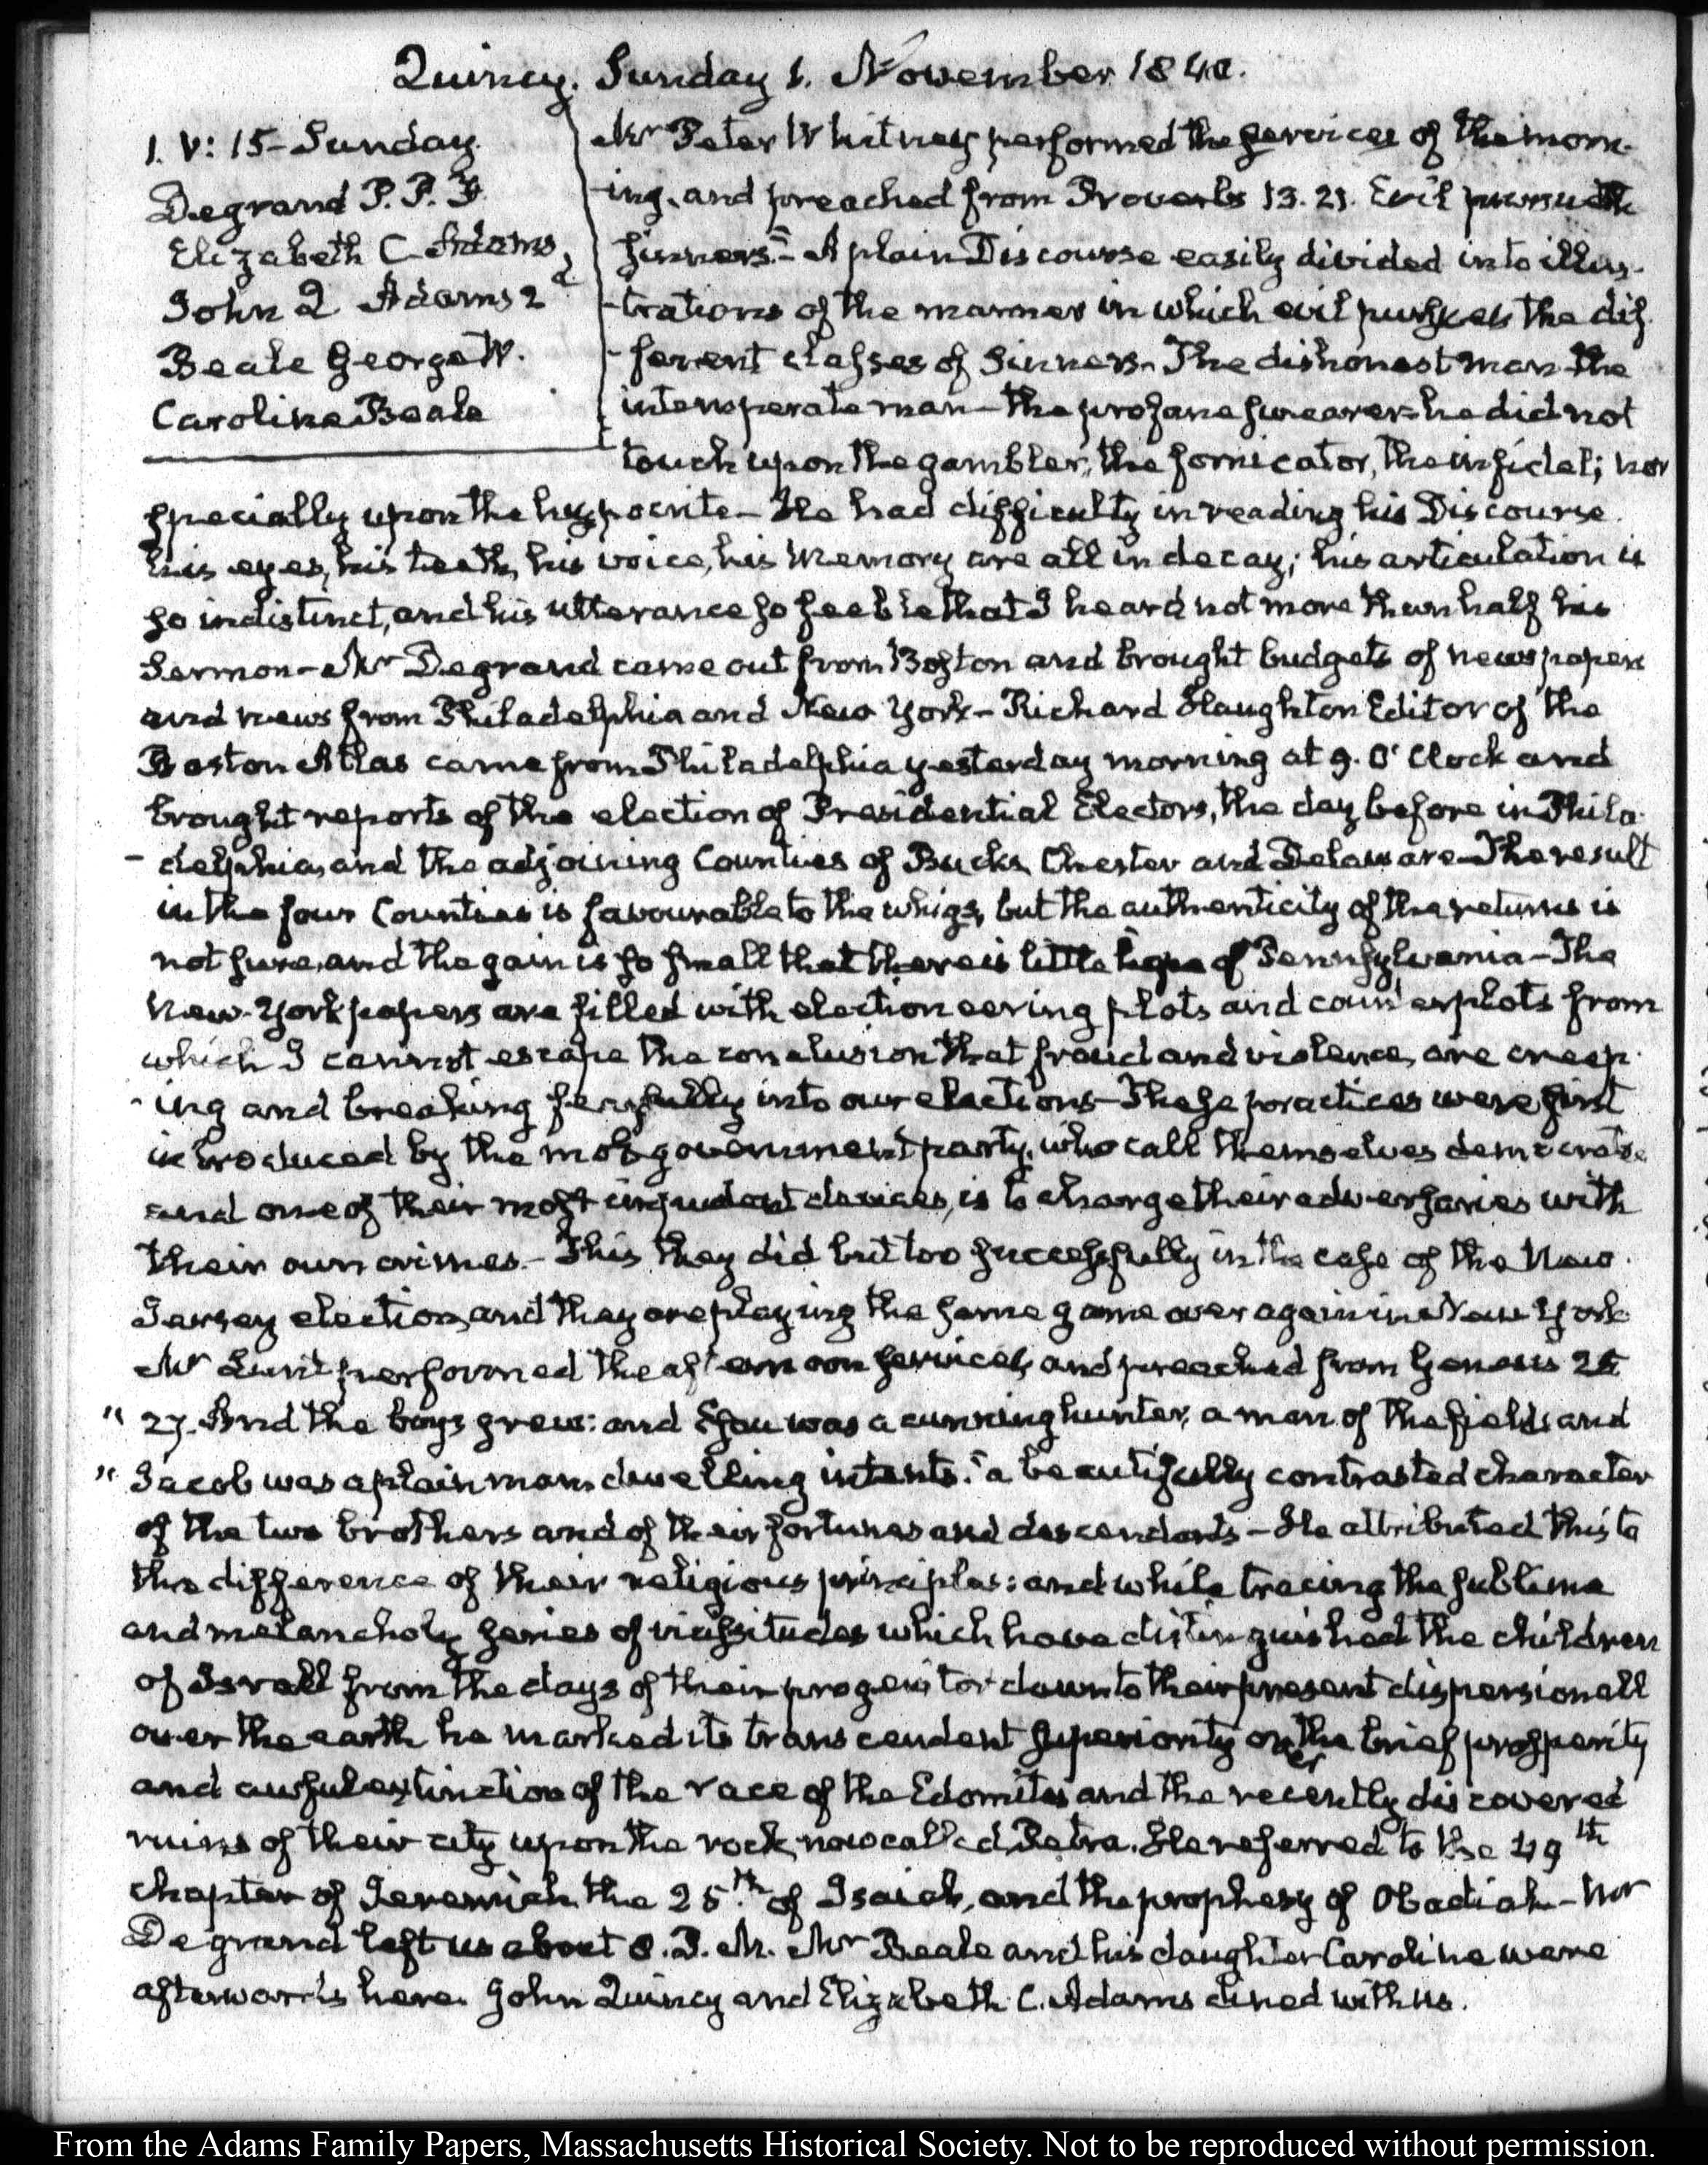 Quincy. Sunday 1. November 1840.
1. V: 15 - Sunday.
Degrand P. P. F.
Elizabeth C. Adams,
John Q Adams 2d
Beale George W.
Caroline Beale
Mr Peter Whitney performed the services of the morn-
ing, and preached from Proverbs 13. 21. Evil pursueth
sinners." - A plain Discourse easily divided into illus-
-trations of the manner in which evil pursues the dif-
-ferent classes of Sinners - The dishonest man - the
intemperate man - the profane swearer - he did not
touch upon the gambler, the fornicator, the infidel; nor
specially upon the hypocrite - He had difficulty in reading his Discourse.
his eyes, his teeth, his voice, his memory are all in decay; his articulation is
so indistinct, and his utterance so feeble that I heard not more than half his
Sermon - Mr Degrand came out from Boston and brought budgets of newspapers
and news from Philadelphia and New York - Richard Haughton Editor of the
Boston Atlas came from Philadelphia yesterday morning at 9. O'Clock and
brought reports of the election of Presidential Electors, the day before in Phila-
-delphia, and the adjoining Counties of Bucks, Chester and Delaware - The result
in the four Counties is favourable to the whigs, but the authenticity of the returns is
not sure, and the gain is so small that there is little hope of Pennsylvania - The
New-York papers are filled with electioneering plots and counterplots from
which I cannot escape the conclusion that fraud and violence, are creep-
-ing and breaking fearfully into our elections - These practices were first
introduced by the mob-government party, who call themselves democrats
and one of their most impudent devices, is to charge their adversaries with
their own crimes. - This they did but too successfully in the case of the New-
Jersey election, and they are playing the same game over again in New York
Mr Lunt performed the afternoon services, and preached from Genesis 25
" 27. And the boys grew: and Esau was a cunning hunter, a man of the field; and
" Jacob was a plain man, dwelling in tents." a beautifully contrasted character
of the two brothers and of their fortunes and descendants - He attributed this to
the difference of their religious principles: and while tracing the sublime
and melancholy series of vicissitudes which have distinguished the children
of Israel from the days of their progenitor down to their present dispersion all
over the earth he marked its transcendent superiority over the brief prosperity
and awful extinction of the race of the Edomites and the recently discovered
ruins of their city upon the rock, now called Petra. He referred to the 49th
chapter of Jeremiah the 25th of Isaiah, and the prophesy of Obadiah - Mr
Degrand left us about 8. P. M. Mr Beale and his daughter Caroline were
afterwards here. John Quincy and Elizabeth C. Adams dined with us.
From the Adams Family Papers, Massachusetts Historical Society. Not to be reproduced without permission.